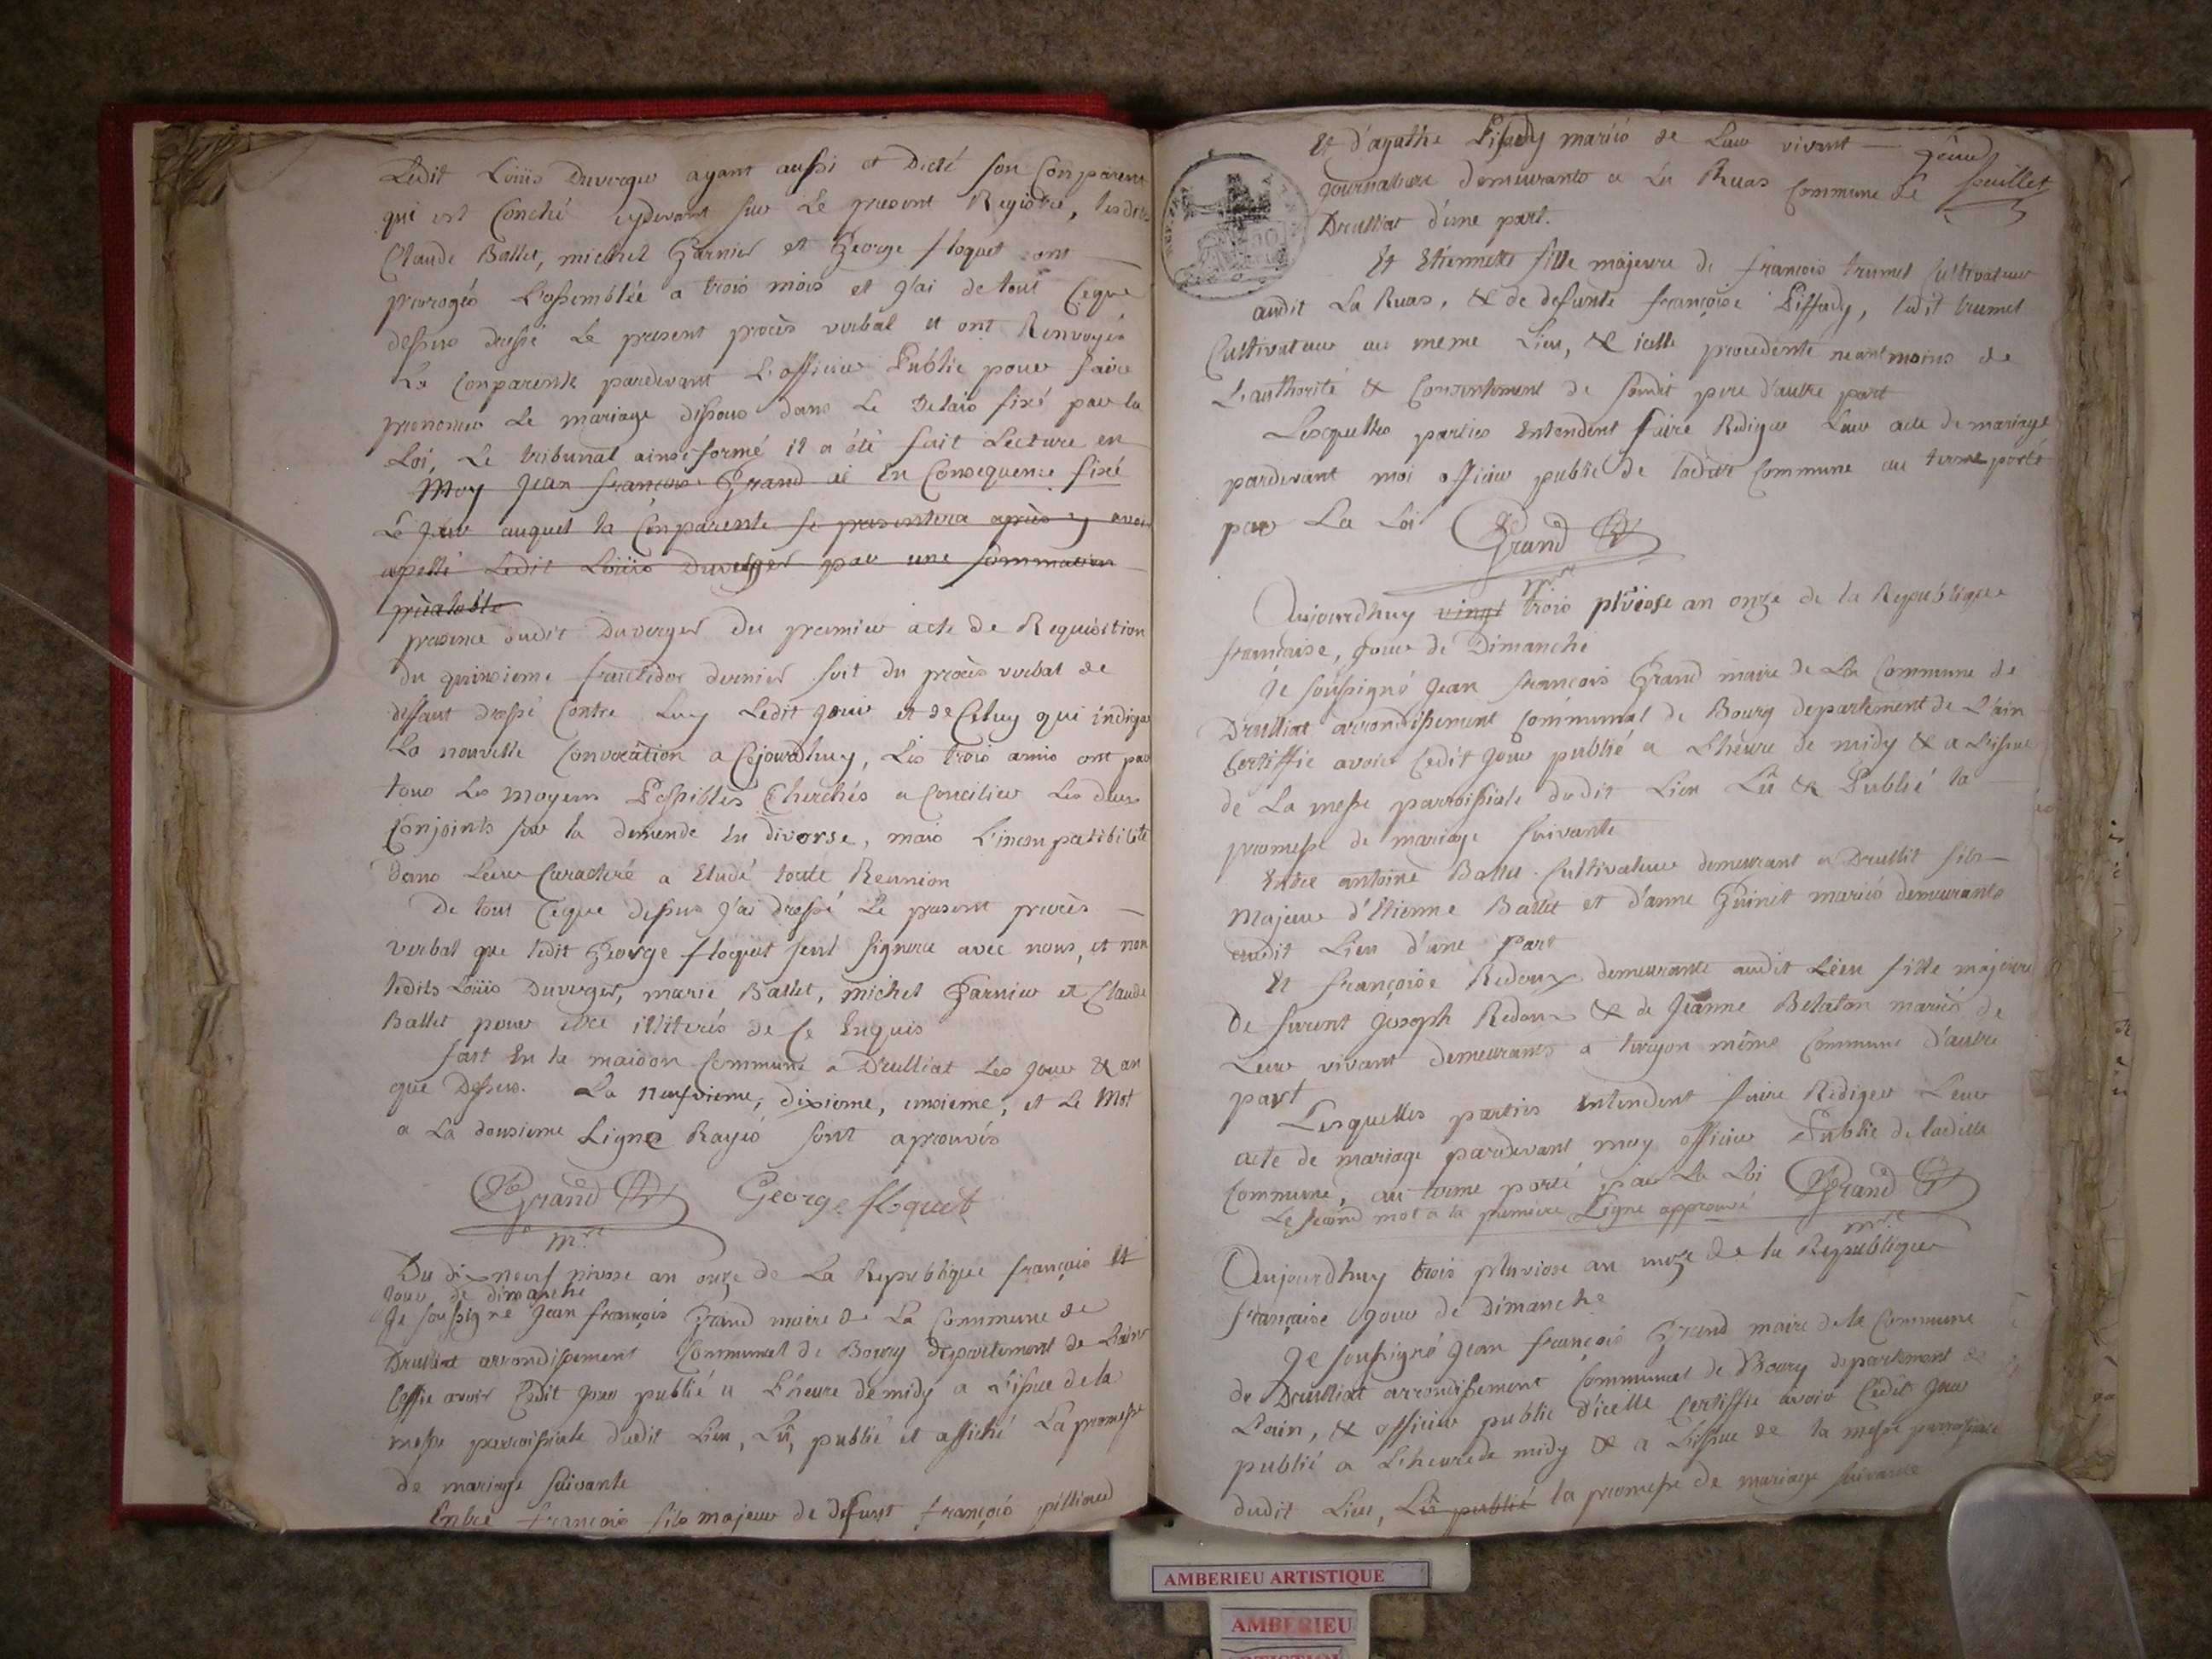 Ledit Loüis Duverger ayant aussi et Dicté son Comparent
qui est Couché cydevant sur Le present Registre, lesdits
Claude Ballet, michel Garnier et George floquet ont
prorogés L'assemblée a trois mois et j'ai de tout Ceque
dessus dressé Le present procès verbal et ont Renvoyés
La Comparente pardevant L'officier Public pour faire
prononcer Le mariage dissous dans Le Delais fixé par la
Loi, Le tribunal ainsi formé il a été fait Lecture en
Moy Jean françois Grand ai En Consequence fixé
Le Jour auquel la Comparente se presentera après y avoir
apellé Ledit Loüis Duverger par une sommation
préalable
presence dudit Duverger du premier acte de Requisition
du quinsieme fructidor dernier soit du procès verbal de
deffaut dressé Contre Luy Ledit jour et de Celuy qui indique
La nouvelle Convocation a Cejourdhuy, Les trois amis ont par
tous Les moyens Possibles Cherchés a Concilier Les deux
Conjoints sur la demende En divorse, mais L'incompatibilité
dans Leur Caractère a Eludé toute Reunion
De tout Ceque dessus J'ai dressé Le present procès
verbal que ledit George floquet seul signera avec nous, et non
lesdits Loüis Duverger, marie Ballet, michel Garnier et Claude
Ballet pour être illiterés de Ce Enquis
fait En la maison Commune a Drulliat Les jour & an
que Dessus. La neufvieme, dixieme, onsieme, et Le Mot
a La dousieme Ligne Rayés sont aprouvés
Grand George floquet
mre
Du dixneuf nivose an onze de La Republique français et
Jour de dimanche
Je soussigné Jean françois Grand maire de La Commune de
Drulliat arrondissement Communal de Bourg département de L'ain
Certifie avoir Cedit Jour publié a L'heure de midy a L'issue de la
messe parroissiale dudit Lieu, Lû, publié et affiché La promesse
de mariage suivante
Entre françois fils majeur de defunt françois pilliond
Et d'agathe Piffady mariés de Leur vivant
feuillet
journaliere demeurants a La Ruas Commune de
Drulliat d'une part.
Et Etiennette fille majeure de françois trumel Cultivateur
audit La Ruas, & de defunte françoise Piffady, ledit trumel
Cultivateur au meme Lieu, & icelle procedente neantmoins de
L'authorité & Consentement de sondit pere d'autre part
Lesquelles parties Entendent faire Rediger Leur acte de mariage
pardevant moi officier public de ladite Commune au terme porté
par La Loi Grand
mre
Aujourdhuy vingt trois plüviose an onze de la Republique
française, jour de Dimanche
Je soussigné Jean françois Grand maire de La Commune de
Drulliat arrondissement Communal de Bourg departement de L'ain
Certiffie avoir Cedit jour publié a L'heure de midy & a L'issue
de La messe parroissiale dudit Lieu Lû & Publié la
promesse de mariage suivante
Entre antoine Ballet Cultivateur demeurant a Drullit fils
Majeur d'Etienne Ballet et d'anne Guinet mariés demeurants
audit Lieu d'une part
Et françoise Redoux demeurante audit Lieu fille majeure
De furent Joseph Redoux & de Jeanne Belaton mariés de
Leur vivant demeurants a turgon même Commune d'autre
part
Lesquelles parties Entendent faire Rediger Leur
acte de mariage pardevant moy officier Public de ladite
Commune, au terme porté par La Loi Grand
Le second mot a la premiere Ligne approuvé
mre
Aujourdhuy trois pluviose an onze de la Republique
française jour de Dimanche
Je soussigné Jean françois Grand maire de la Commune
de Drulliat arrondissement Communal de Bourg departement de
L'ain, & officier public d'icelle Certiffie avoir Cedit jour
publié a L'heure de midy & a L'issue de la messe parroissiale
dudit Lieu, Lû publié la promesse de mariage suivante
AMBERIEU ARTISTIQUE
AMBERIEU
ARTISTIQUE